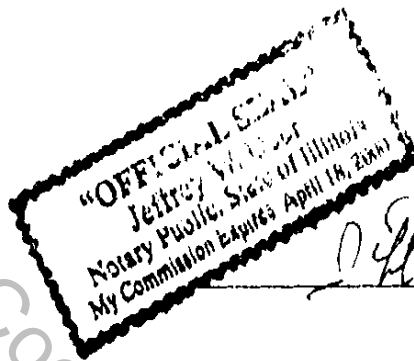 "OFFICIAL SEAL"
Jeffrey
Notary Public, State of Illinois
My Commission Expires April 18, 2000